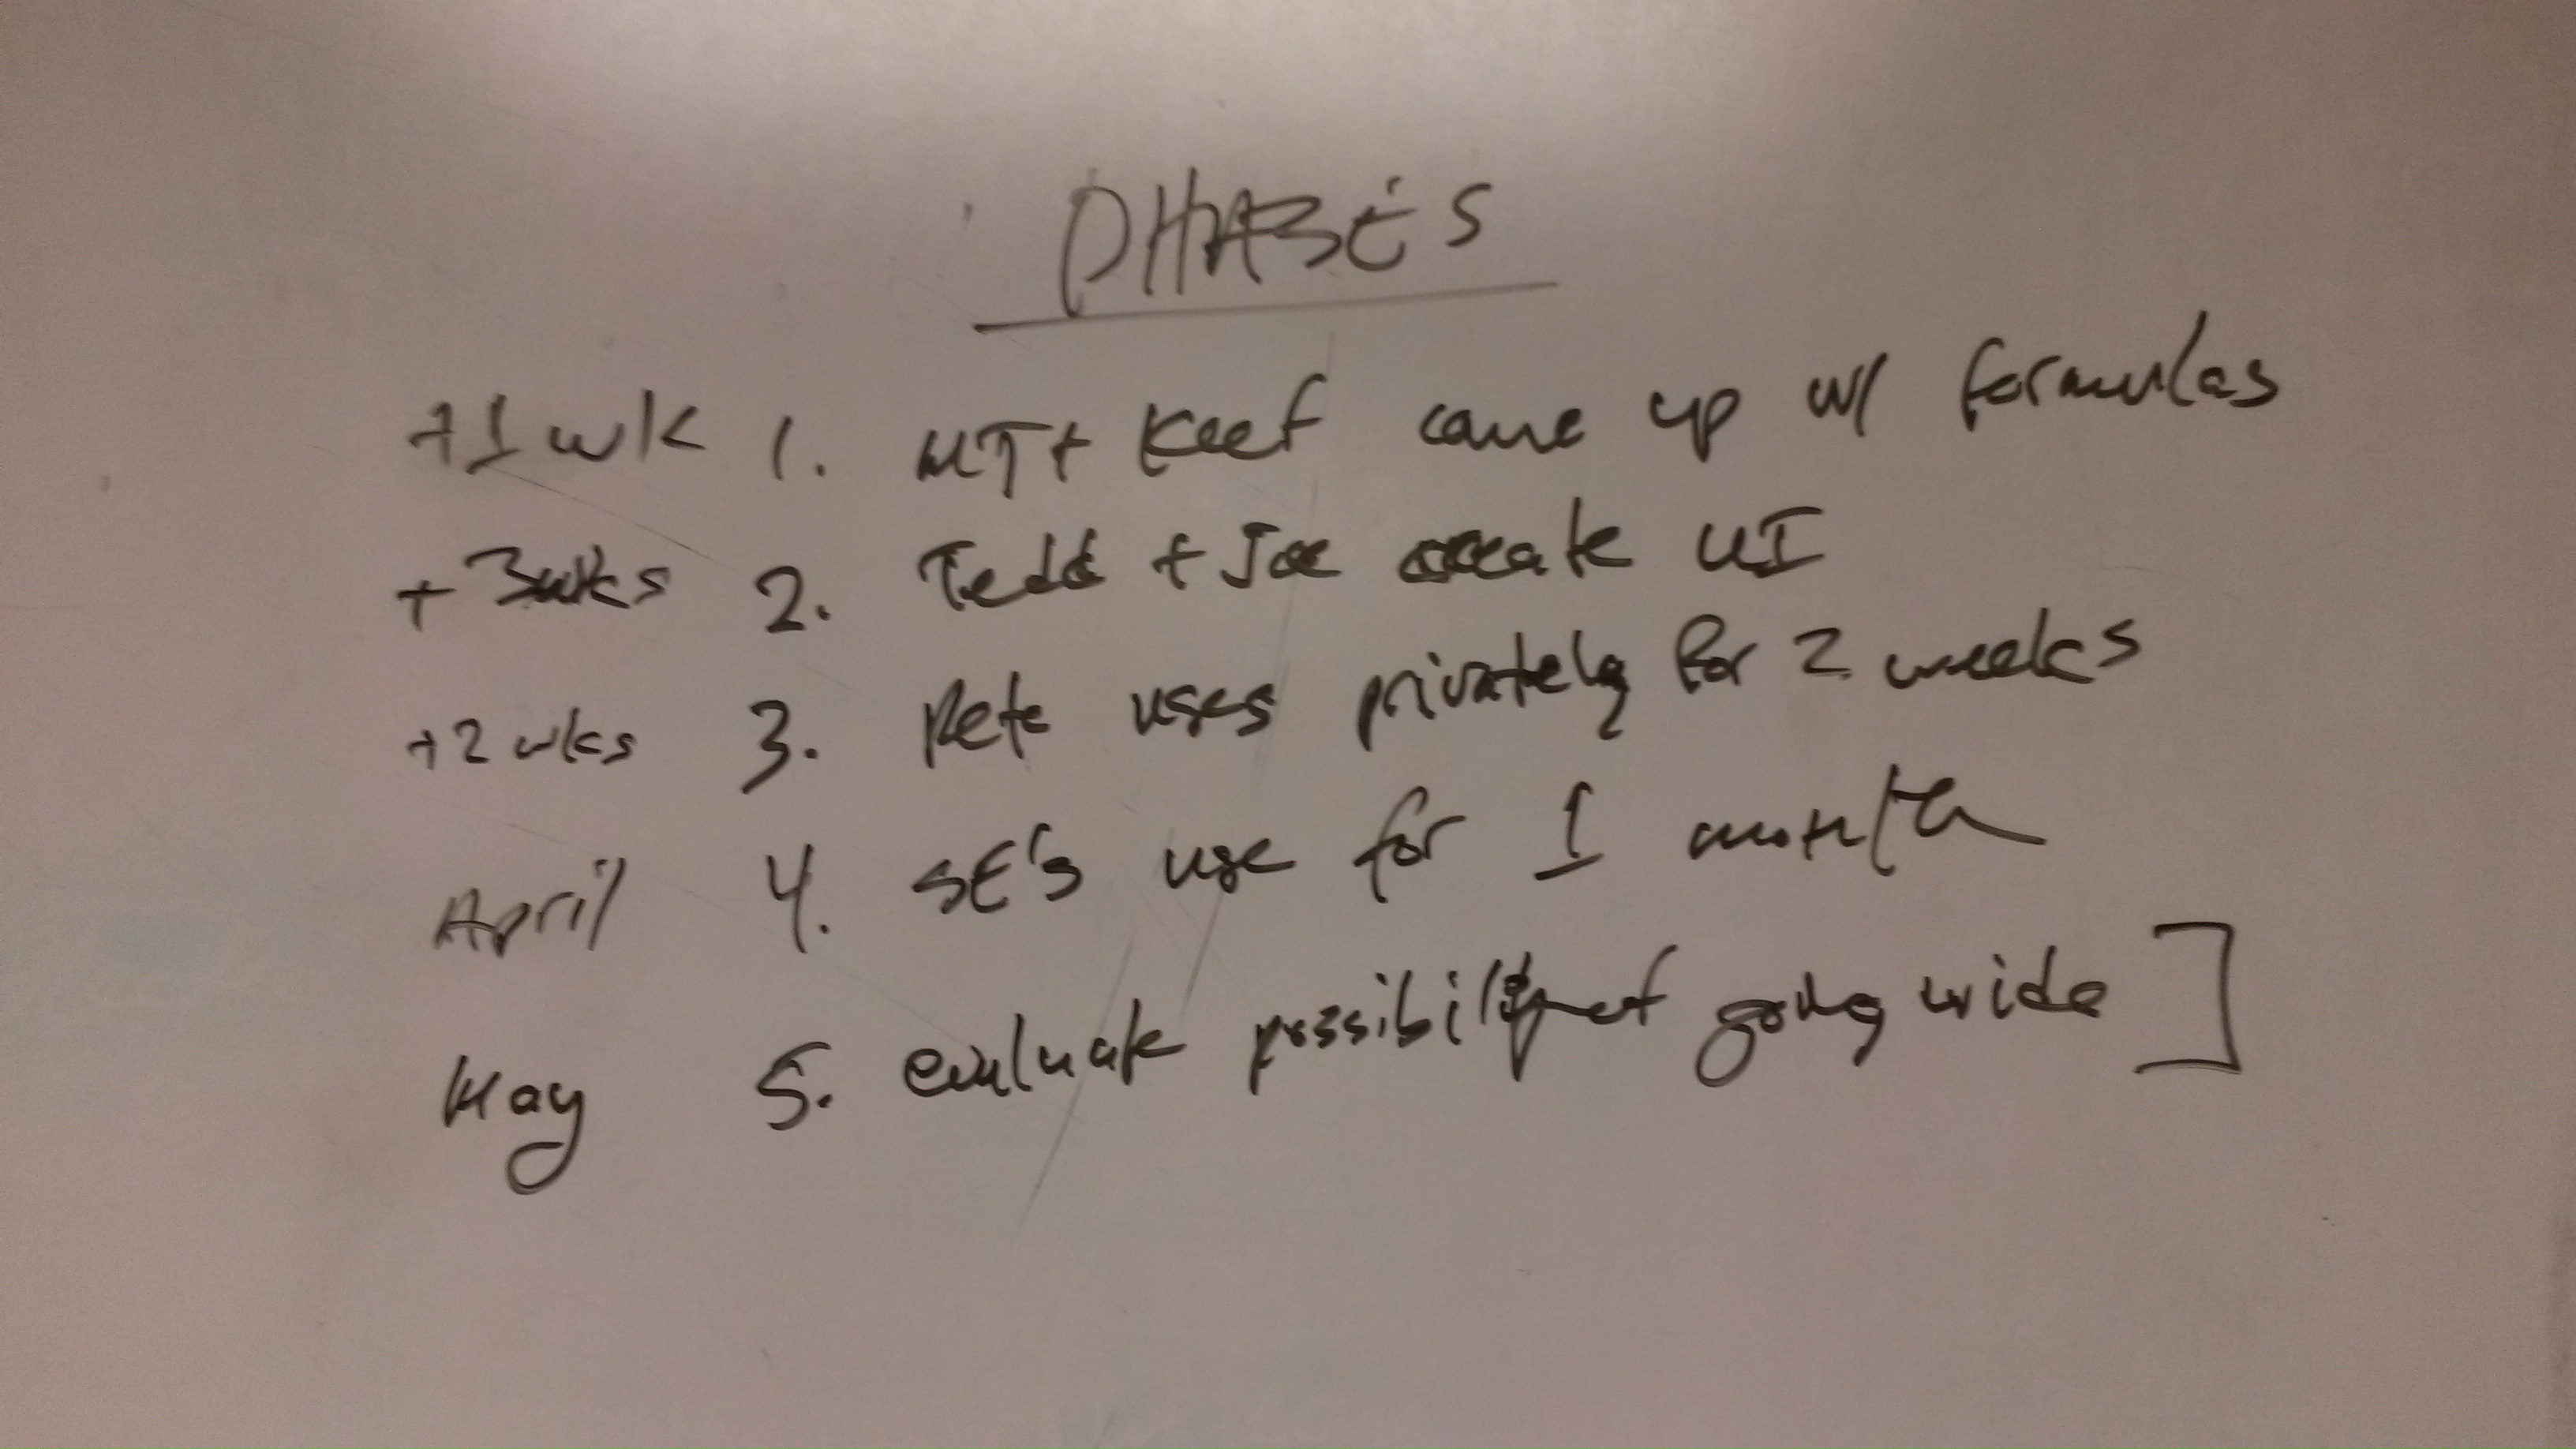 PHASES
+1 wk 1. MT + Keef come up w/ formulas
+3wks 2. Tedd + Joe create UI
+2 wks 3. Pete uses privately for 2 weeks
April 4. SE's use for 1 month
May 5. evaluate possibility of going wide ]